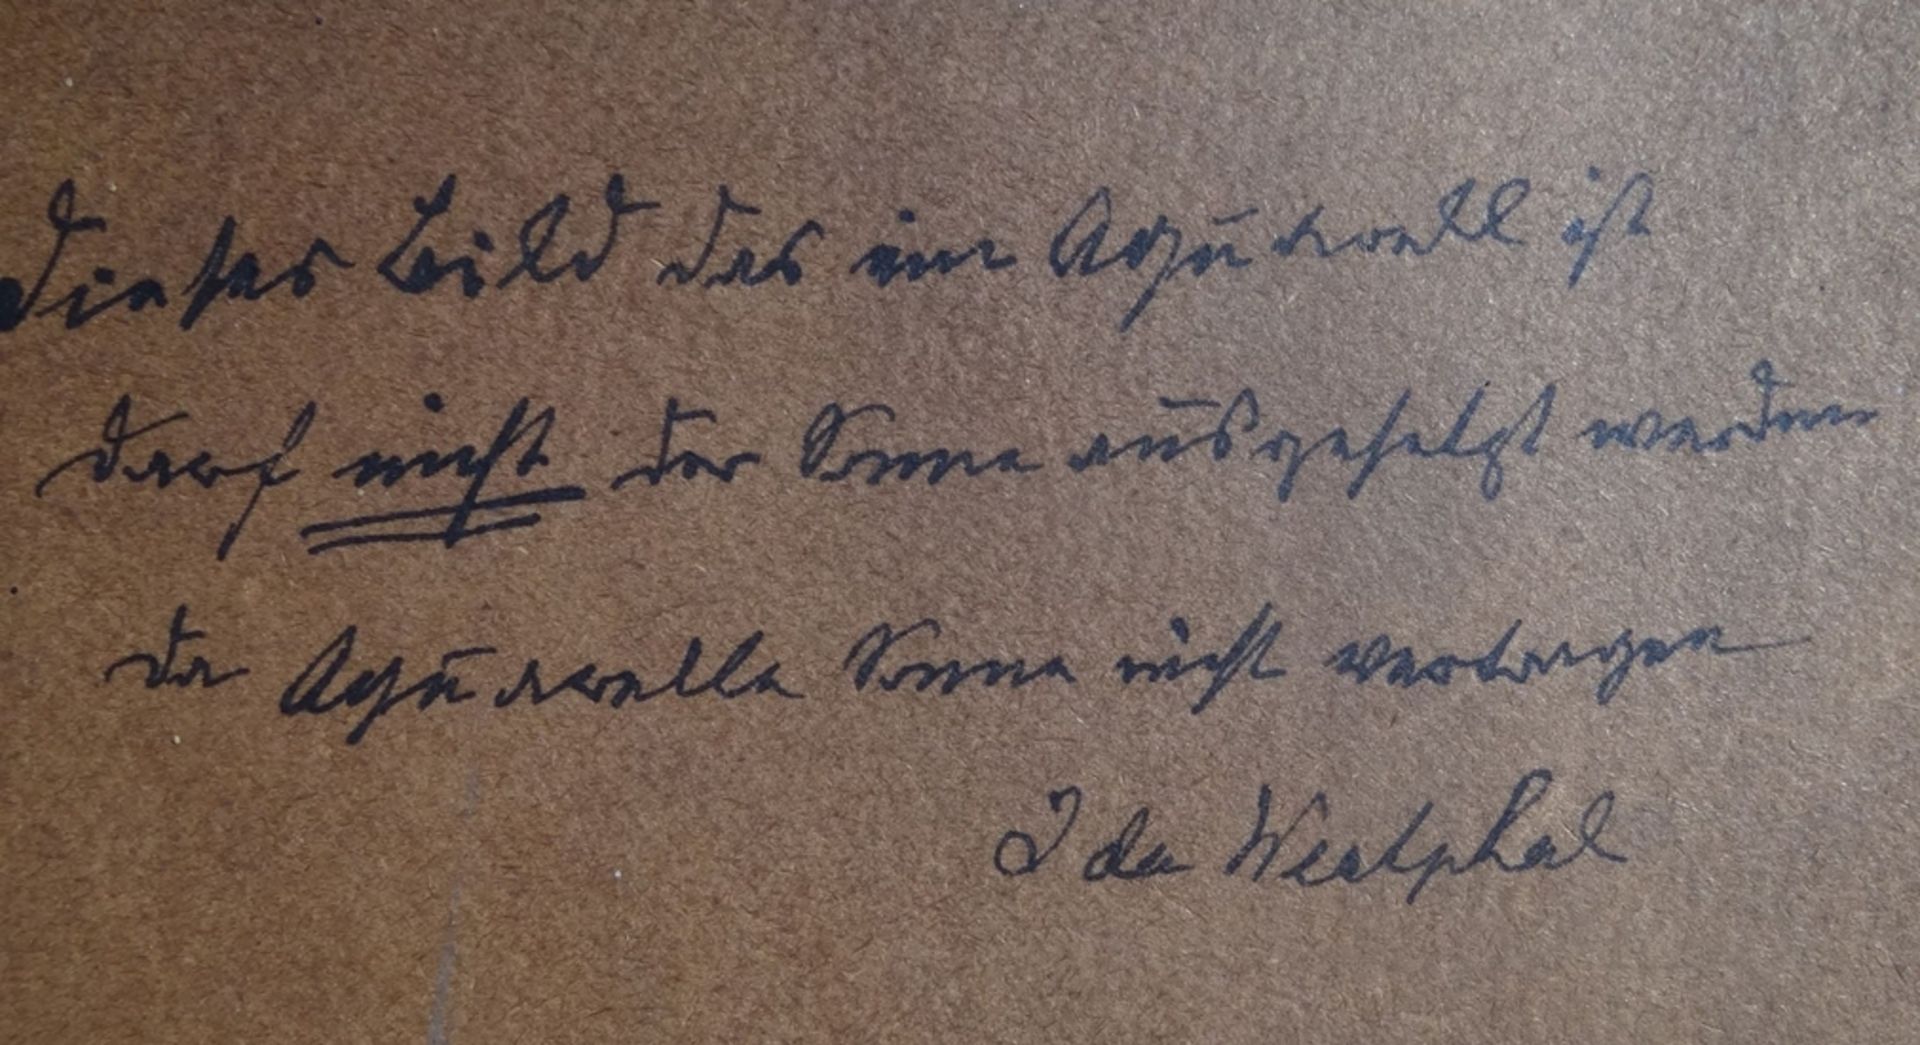 Dieses Bild das ein Aquarell ist
darf nicht der Sonne ausgesetzt werden
da Aquarelle Sonne nicht vertragen
Ida Westphal